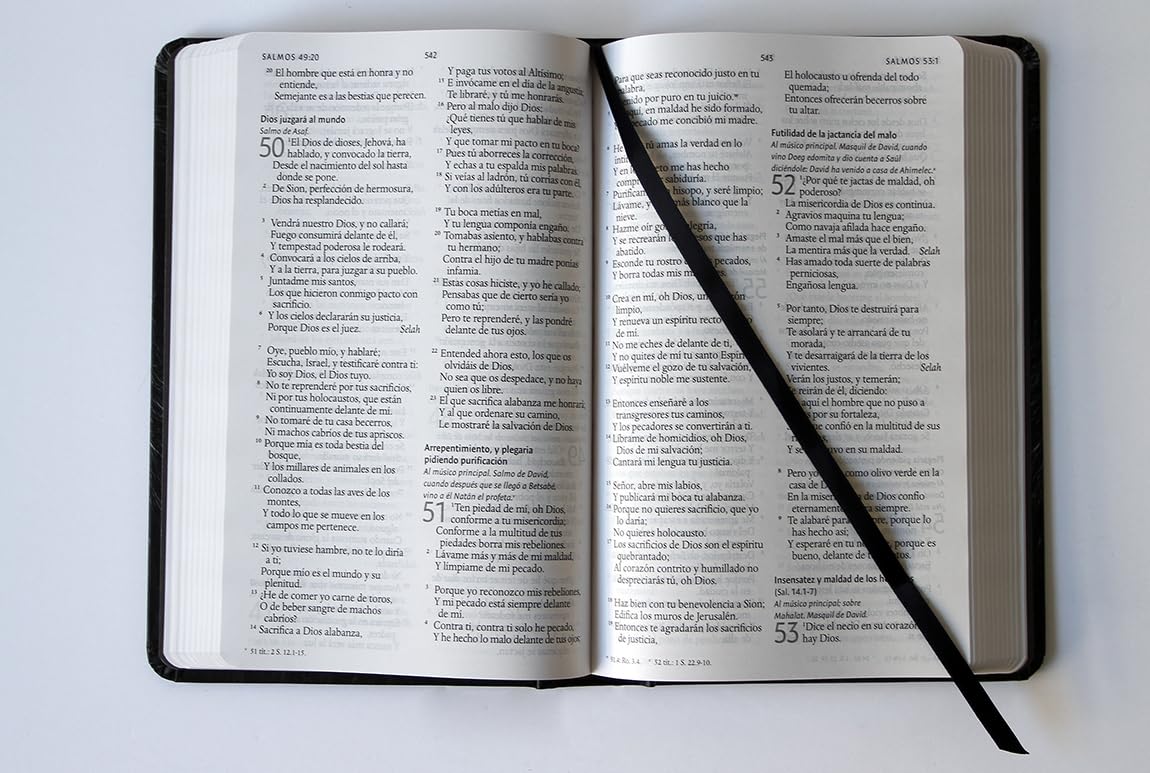 SALMOS 49:20
542
20 El hombre que está en honra y no
entiende,
Semejante es a las bestias que perecen.
Dios juzgará al mundo
Salmo de Asaf.
50 1El Dios de dioses, Jehová, ha
hablado, y convocado la tierra,
Desde el nacimiento del sol hasta
donde se pone.
2 De Sion, perfección de hermosura,
Dios ha resplandecido.
3 Vendrá nuestro Dios, y no callará;
Fuego consumirá delante de él,
Y tempestad poderosa le rodeará.
4 Convocará a los cielos de arriba,
Y a la tierra, para juzgar a su pueblo.
5 Juntadme mis santos,
Los que hicieron conmigo pacto con
sacrificio.
6 Y los cielos declararán su justicia,
Porque Dios es el juez. Selah
7 Oye, pueblo mío, y hablaré;
Escucha, Israel, y testificaré contra ti:
Yo soy Dios, el Dios tuyo.
8 No te reprenderé por tus sacrificios,
Ni por tus holocaustos, que están
continuamente delante de mí.
9 No tomaré de tu casa becerros,
Ni machos cabríos de tus apriscos.
10 Porque mía es toda bestia del
bosque,
Y los millares de animales en los
collados.
11 Conozco a todas las aves de los
montes,
Y todo lo que se mueve en los
campos me pertenece.
12 Si yo tuviese hambre, no te lo diría
a ti;
Porque mío es el mundo y su
plenitud.
13 ¿He de comer yo carne de toros,
O de beber sangre de machos
cabríos?
14 Sacrifica a Dios alabanza,
Y paga tus votos al Altísimo;
15 E invócame en el día de la angustia;
Te libraré, y tú me honrarás.
16 Pero al malo dijo Dios:
¿Qué tienes tú que hablar de mis
leyes,
Y que tomar mi pacto en tu boca?
17 Pues tú aborreces la corrección,
Y echas a tu espalda mis palabras.
18 Si veías al ladrón, tú corrías con él,
Y con los adúlteros era tu parte.
19 Tu boca metías en mal,
Y tu lengua componía engaño.
20 Tomabas asiento, y hablabas contra
tu hermano;
Contra el hijo de tu madre ponías
infamia.
21 Estas cosas hiciste, y yo he callado;
Pensabas que de cierto sería yo
como tú;
Pero te reprenderé, y las pondré
delante de tus ojos.
22 Entended ahora esto, los que os
olvidáis de Dios,
No sea que os despedace, y no haya
quien os libre.
23 El que sacrifica alabanza me honrará;
Y al que ordenare su camino,
Le mostraré la salvación de Dios.
Arrepentimiento, y plegaria
pidiendo purificación
Al músico principal. Salmo de David,
cuando después que se llegó a Betsabé,
vino a él Natán el profeta.*
51 1Ten piedad de mí, oh Dios,
conforme a tu misericordia;
Conforme a la multitud de tus
piedades borra mis rebeliones.
2 Lávame más y más de mi maldad,
Y límpiame de mi pecado.
3 Porque yo reconozco mis rebeliones,
Y mi pecado está siempre delante
de mí.
4 Contra ti, contra ti solo he pecado,
Y he hecho lo malo delante de tus ojos;
* 51 tít.: 2 S. 12.1-15.
543
SALMOS 53:1
Para que seas reconocido justo en tu
palabra,
por puro en tu juicio.**
en maldad he sido formado,
pecado me concibió mi madre.
6 He tú amas la verdad en lo
Y en me has hecho
sabiduría.
7 hisopo, y seré limpio;
Lávame, y más blanco que la
nieve.
8 Hazme oír alegría,
Y se recrearán que has
abatido.
9 Esconde tu rostro pecados,
Y borra todas mis
10 Crea en mí, oh Dios, un
limpio,
Y renueva un espíritu recto
de mí.
11 No me eches de delante de ti,
Y no quites de mí tu santo
12 Vuélveme el gozo de tu salvación,
Y espíritu noble me sustente.
13 Entonces enseñaré a los
transgresores tus caminos,
Y los pecadores se convertirán a ti.
14 Líbrame de homicidios, oh Dios,
Dios de mi salvación;
Cantará mi lengua tu justicia.
15 Señor, abre mis labios,
Y publicará mi boca tu alabanza.
16 Porque no quieres sacrificio, que yo
lo daría;
No quieres holocausto.
17 Los sacrificios de Dios son el espíritu
quebrantado;
Al corazón contrito y humillado no
despreciarás tú, oh Dios.
18 Haz bien con tu benevolencia a Sion;
Edifica los muros de Jerusalén.
19 Entonces te agradarán los sacrificios
de justicia,
El holocausto u ofrenda del todo
quemada;
Entonces ofrecerán becerros sobre
tu altar.
Futilidad de la jactancia del malo
Al músico principal. Masquil de David, cuando
vino Doeg edomita y dio cuenta a Saúl
diciéndole: David ha venido a casa de Ahimelec.*
52 1¿Por qué te jactas de maldad, oh
poderoso?
La misericordia de Dios es continua.
2 Agravios maquina tu lengua;
Como navaja afilada hace engaño.
3 Amaste el mal más que el bien,
La mentira más que la verdad. Selah
4 Has amado toda suerte de palabras
perniciosas,
Engañosa lengua.
5 Por tanto, Dios te destruirá para
siempre;
Te asolará y te arrancará de tu
morada,
Y te desarraigará de la tierra de los
vivientes. Selah
Verán los justos, y temerán;
reirán de él, diciendo:
aquí el hombre que no puso a
por su fortaleza,
confió en la multitud de sus
Y se en su maldad.
8 Pero yo como olivo verde en la
casa de
En la de Dios confío
eternamente siempre.
9 Te alabaré para porque lo
has hecho así;
Y esperaré en tu porque es
bueno, delante de
Insensatez y maldad de los
(Sal. 14.1-7)
Al músico principal; sobre
Mahalat. Masquil de David.
53 1Dice el necio en su corazón
hay Dios.
51.4: Ro. 3.4. * 52 tít.: 1 S. 22.9-10.